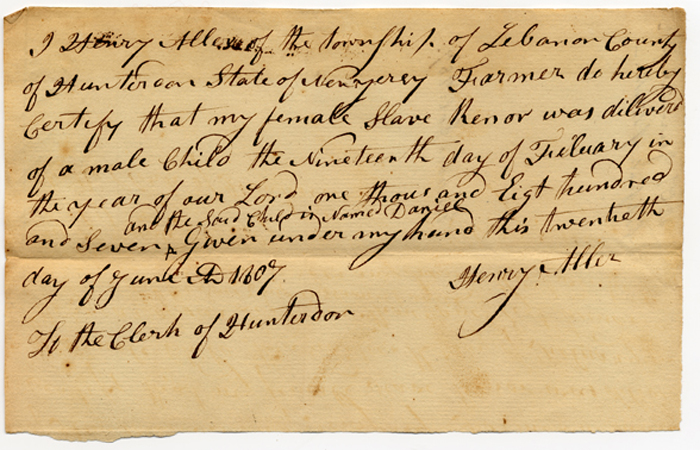 I Henry Aller of the township of Lebanon County
of Hunterdon State of Newjersy Farmer do hereby
Certify that my female Slave Renor was diliverd
of a male Child the Nineteenth day of Febuary in
the year of our Lord one thousand Eigt hundred
and the Said Child is Named Daniel
and Seven ^ Given under my hand this twentieth
day of June AD 1807
Henry Aller
To the Clerk of Hunterdon